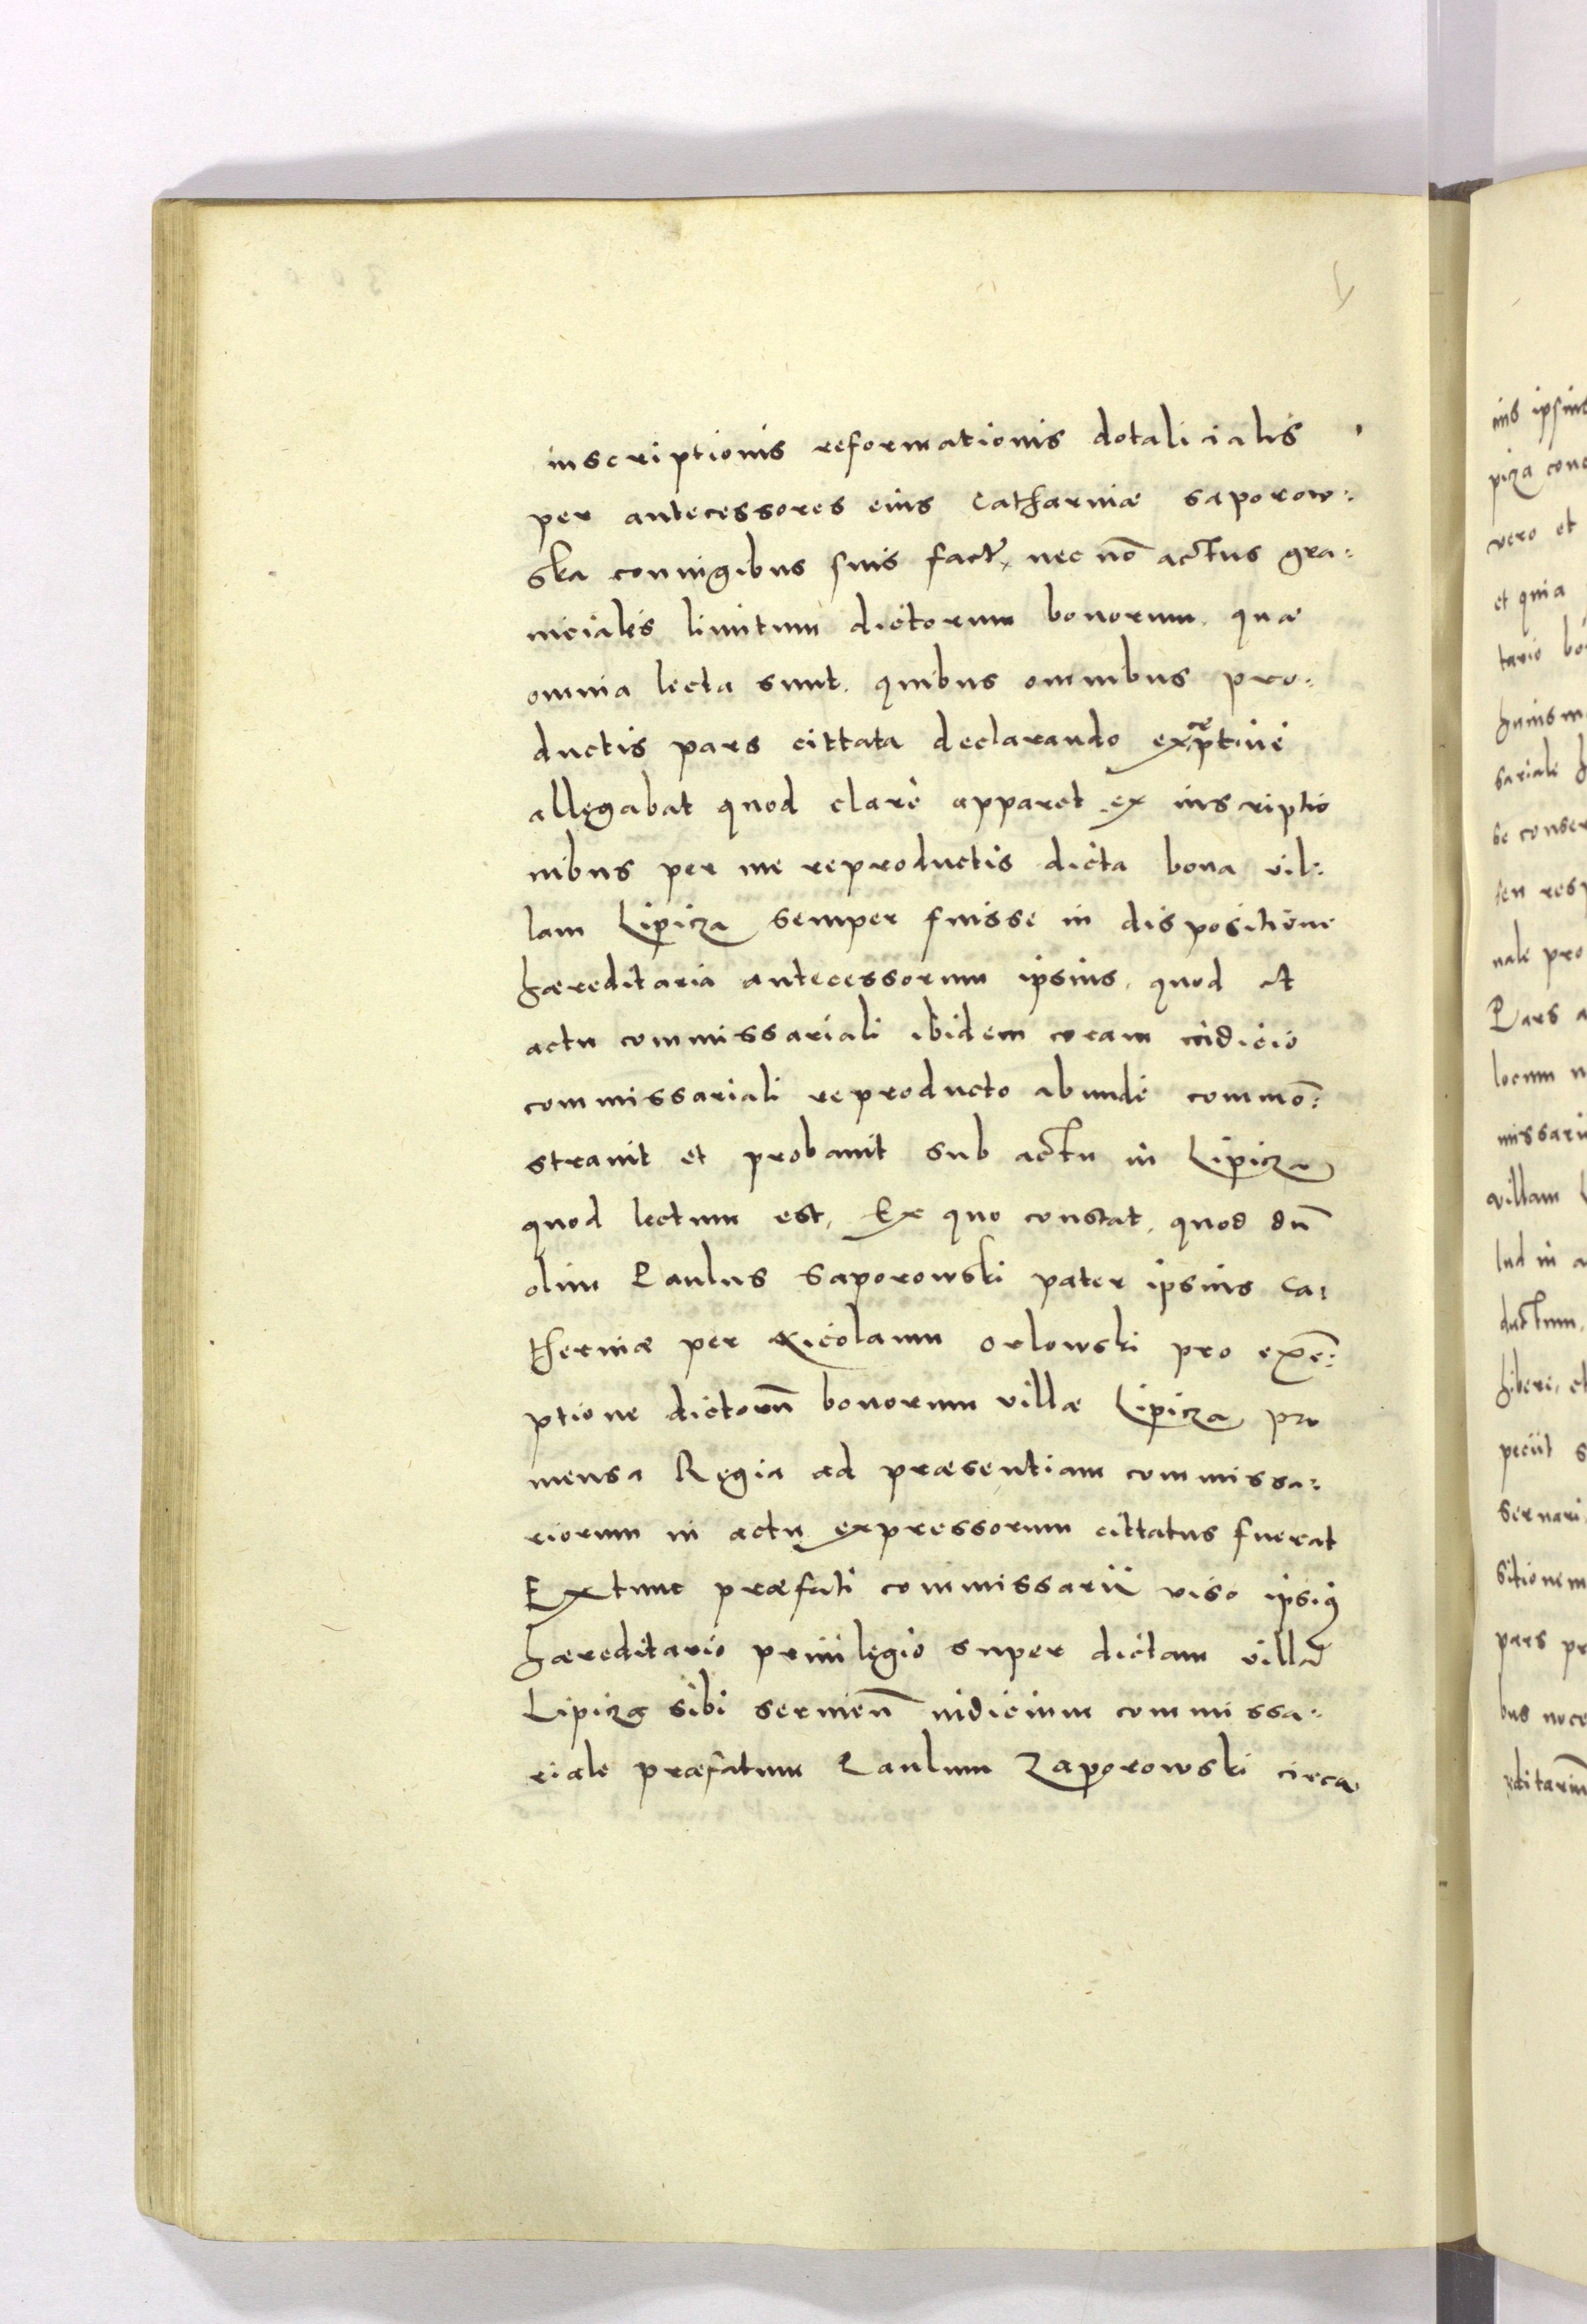 inscriptionis reformationis dotalicialis
per antecessores eius Catharinæ Saporow:
ska coniugibus suis fact, nec nō actus gra:
niciales limitum dictorum bonorum, quæ
omnia lecta sunt, quibus omnibus pro:
ductis pars cittata declarando
allegabat quod clarè apparet ex inscriptio
nibus per me reproductis dicta bona vil:
lam Lipicza semper fuisse in dispositione
hæreditaria antecessorum ipsius, quod et
actu commissariali ibidem coram iudicio
commissariali reproducto abundè commō:
stravit et probavit sub actu in Lipicza
quod lectum est, Ex quo constat, quod dū
olim Paulus Saporowski pater ipsius Ca:
therinæ per Nicolaum Orlowski pro exē:
ptione dictorū bonorum villæ Lipicza pro
mensa Regia ad præsentiam commissa:
riorum in actu expressorum cittatus fuerat
Extunc præfati commissarii viso ipsius
hæreditario privilegio super dictam villā
Lipicza sibi servien̄ iudicium commissa:
riale præfatum Paulum Zaporowski circa
ius ipsius
piza
vero et
et quia
tario
sariale
se conser
seu resp
nale pro
Pars a
locum
missari
villam
lud in a
ductum,
hiberi, et
petiit s
servari
sitionem
pars pr
bus noce